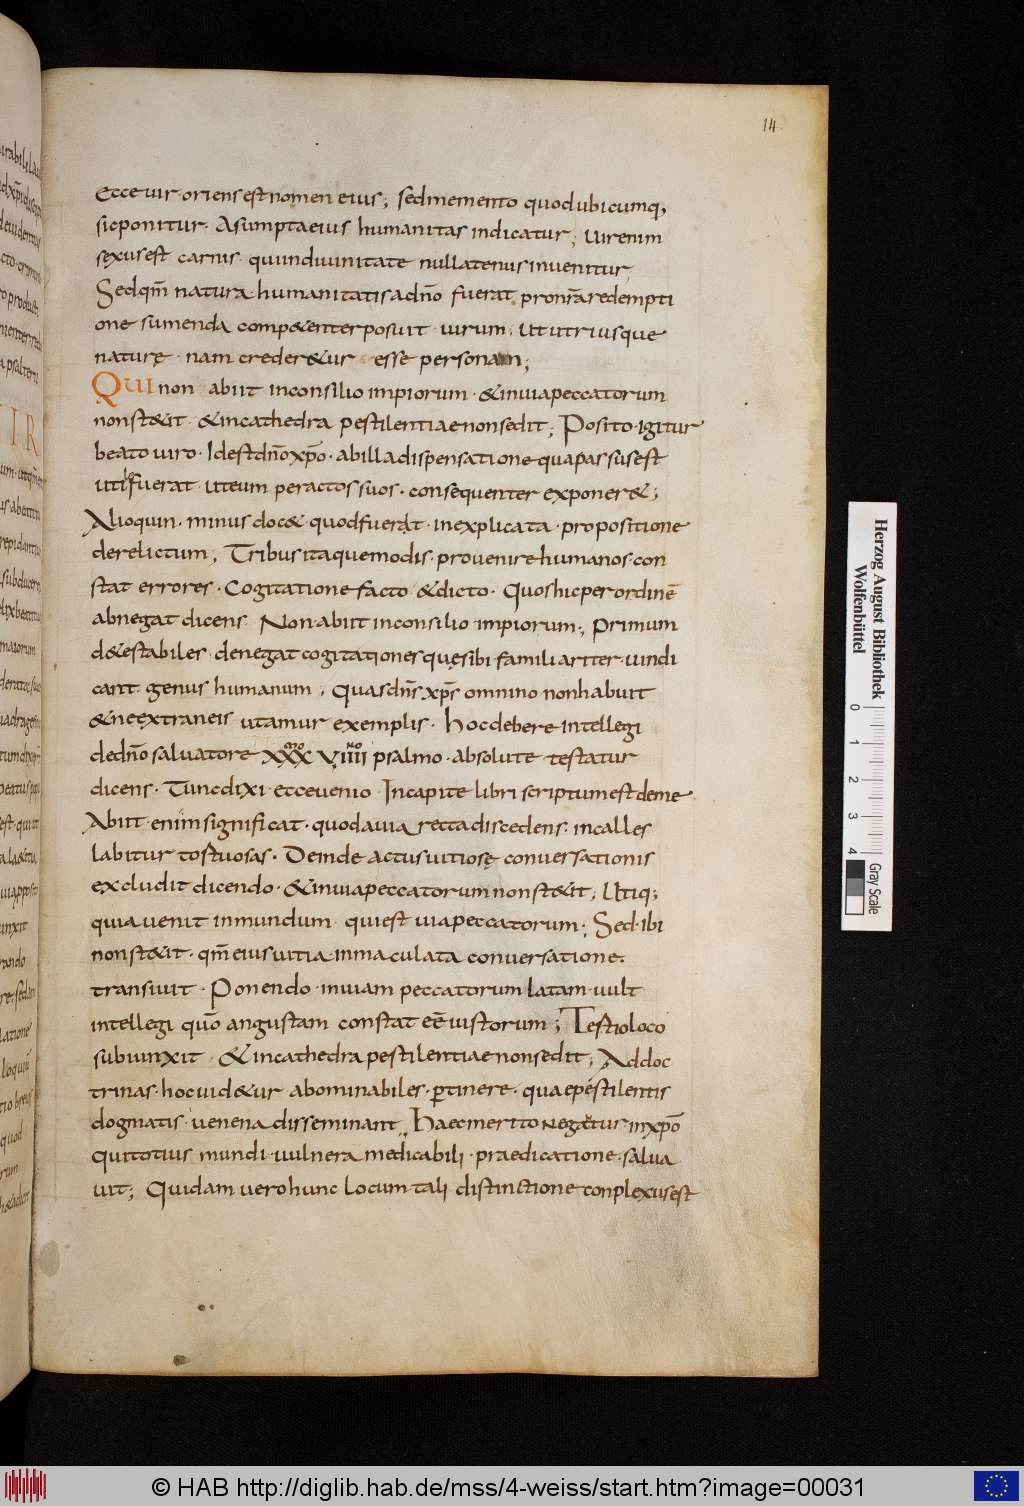 14
Ecce uir · oriens est nomen eius; sed memento quod ubicumq;
sic ponitur · Asumpta eius humanitas indicatur; Uir enim
sexus est carnis · qui in diuinitate nullatenus inuenitur
Sed qm̄ natura humanitatis a dn̄o fuerat pro nr̄a redempti
one sumenda conpetenter posuit · uirum · ut utriusque
naturę · nam crederetur esse personam;
QUI non abiit in consilio impiorum · & in uia peccatorum
non stetit · & in cathedra pestilentiae non sedit; Posito · igitur
beato uiro · Id est dn̄o xp̄o · ab illa dispensatione qua passus est
utile fuerat · ut eum per actos suos · consequenter exponeret;
Alioquin · minus docet · quod fuerat · in explicata · propositione
derelictum; Tribus itaque modis · prouenire humanos · con
stat errores · Cogitatione facto & dicto · Quos hic per ordinē
abnegat dicens Non abiit in consilio impiorum; Primum
detestabiles · denegat cogitationes quę sibi familiariter · uindi
cant · genus humanum · quas dn̄s xp̄s omnino non habuit
& ne extraneis utamur exemplis · hoc debere intellegi
de dn̄o saluatore XXX VIIII psalmo · absolute testatur
dicens · Tunc dixi · ecce uenio · In capite libri scriptum est de me ·
Abiit · enim significat · quod a uia recta discedens · in calles
labitur tostuosas · Deinde actus uitiosę conuersationis
excludit dicendo · & in uia peccatorum non stetit; Utiq;
quia uenit in mundum qui est uia peccatorum; Sed · ibi
non stetit · qm̄ eius uitia inmaculata conuersatione ·
transiuit · Ponendo · in uiam peccatorum latam · uult
intellegi quō angustam constat eē iustorum; Testio loco
subiunxit · & in cathedra pestilentiae non sedit; Ad doc
trinas · hoc uidetur abominabiles · ꝑtinere · quae pestilentis
dogmatis · uenena disseminant · haec merito negetur in xp̄o
qui totius mundi · uulnera medicabili · praedicatione · salua
uit; Quidam uero hunc locum tali distinctione conplexus est
Herzog August Bibliothek
Wolfenbüttel
0 1 2 3 4
Gray Scale
© HAB http://diglib.hab.de/mss/4-weiss/start.htm?image=00031